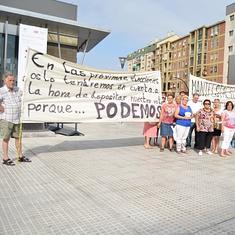 En las próximas elecciones
os lo tendremos en cuenta a
la hora de depositar nuestro voto
porque... PODEMOS